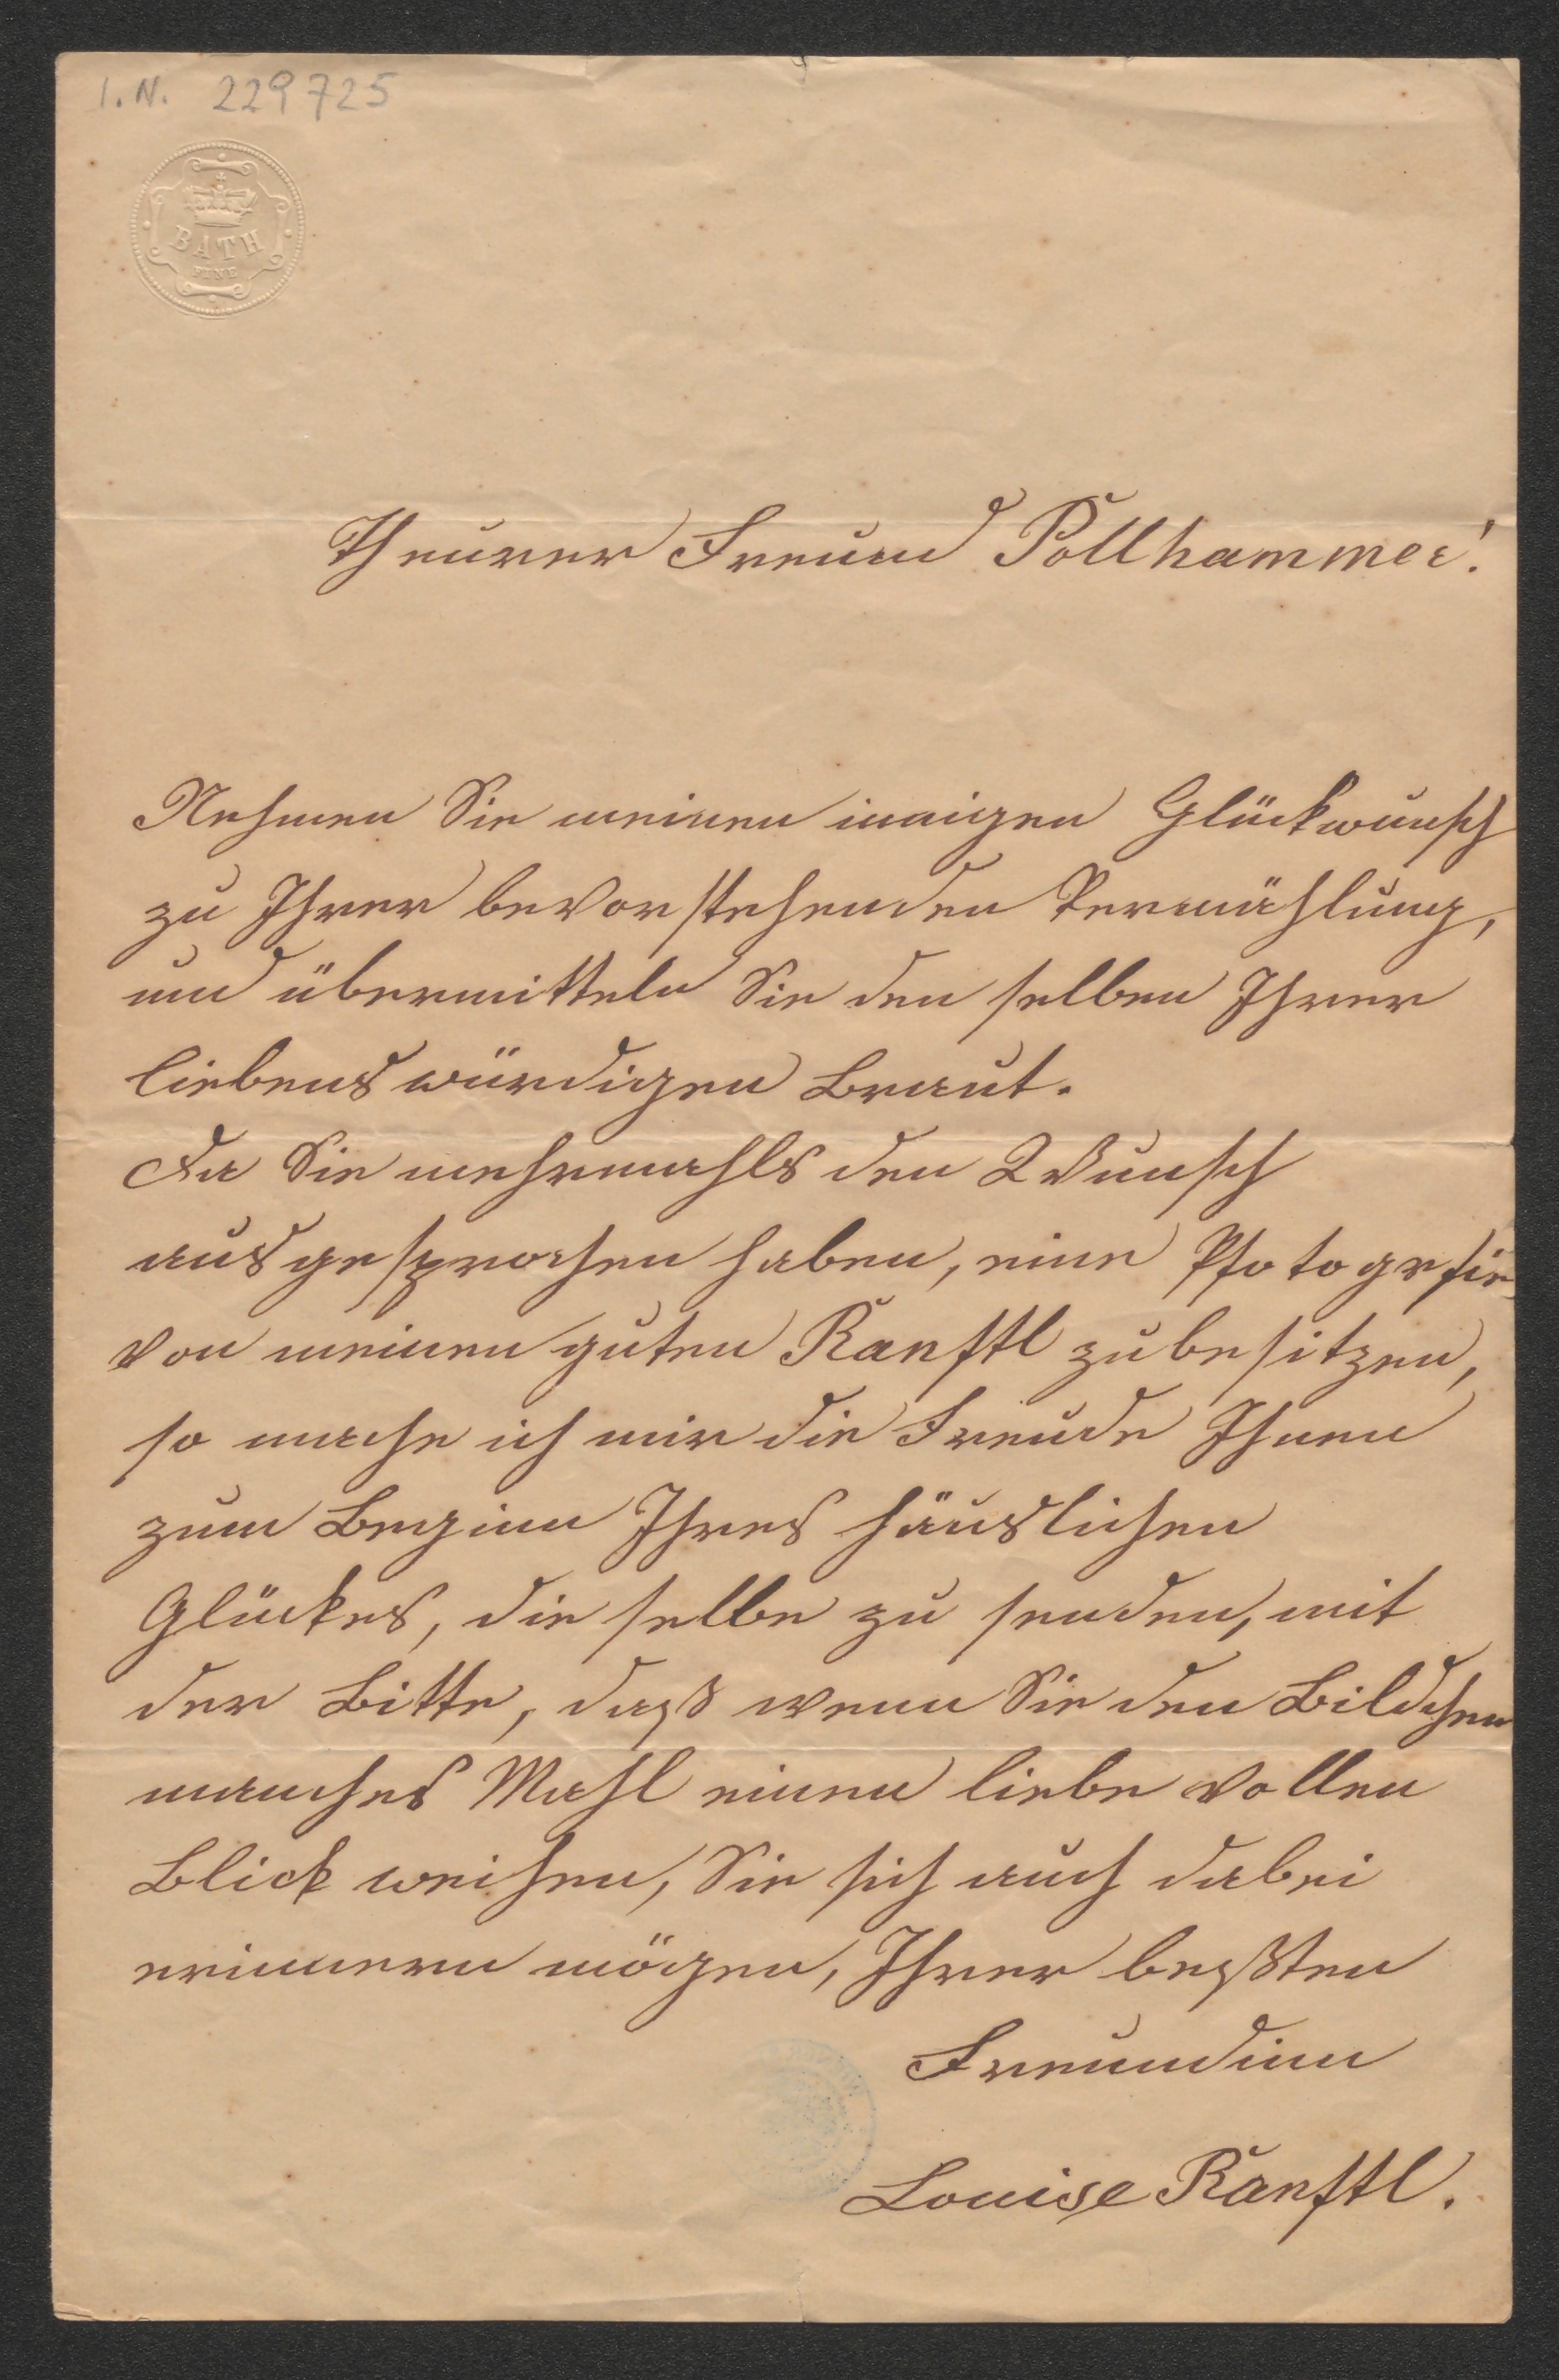 I. N. 229725
BATH
FINE
Theurer Freund Pollhammer!
Nehmen Sie meinen innigen Glückwunsch
zu Ihrer bevorstehenden Vermählung,
und übermitteln Sie den selben Ihrer
liebenswürdigen Braut.
Da Sie mehrmahls den Wunsch
ausgesprochen haben, eine Pfotografie
von meinen guten Ranftl zu besitzen,
so mache ich mir die Freude Ihnen
zum Beginn Ihres häuslichen
Glückes, die selbe zu senden, mit
der Bitte, daß wenn Sie den Bildchen
manches Mahl einen liebe vollen
Blick weihen, Sie sich auch dabei
erinnern mögen, Ihrer beßten
Freundinn
Louise Ranftl.